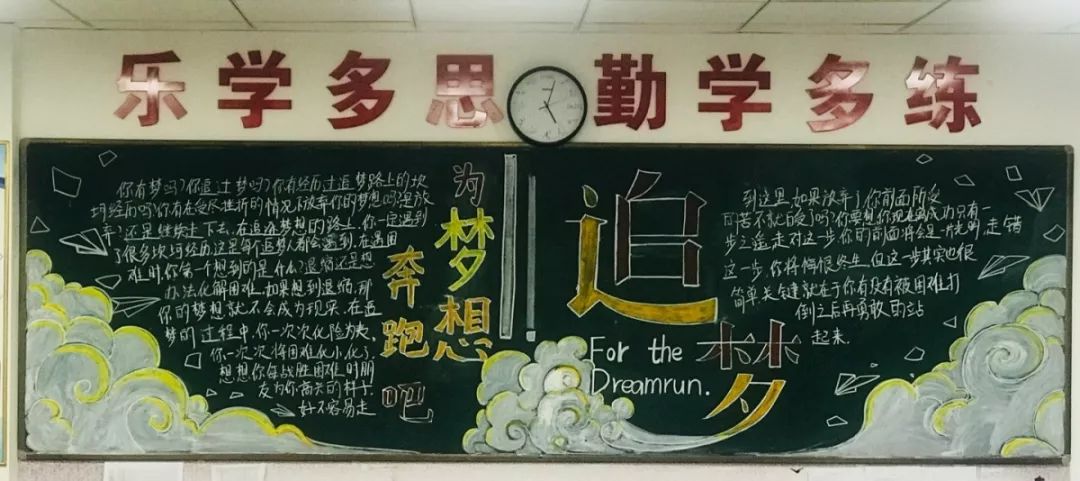 乐学多思 勤学多练
你有梦吗?你追过梦吗?你有经历过追梦路上的坎
坷经历吗?你有在受尽挫折的情况下放弃你的梦想吗?是放
弃?还是继续走下去,在追逐梦想的路上,你一定遇到
了很多坎坷经历,这是每个追梦人都会遇到,在遇困
难时,你第一个想到的是什么?退缩还是想
办法化解困难,如果想到退缩,那
你的梦想就不会成为现实,在追
梦的过程中,你一次次化险为夷,
你一次次将困难化小,化了,
想想你每战胜困难时朋
友为你高兴的样子
好不容易走
为梦想
奔跑吧
追梦
For the
Dreamrun.
到这里,如果放弃了,你前面所受
的苦不就白受了吗?你要想,你现在离成功只有一
步之遥,走对这一步,你的前面将会是一片光明,走错
这一步,你将悔恨终生,但这一步其实也很
简单,关键就在于你有没有被困难打
倒之后再勇敢的站
起来.